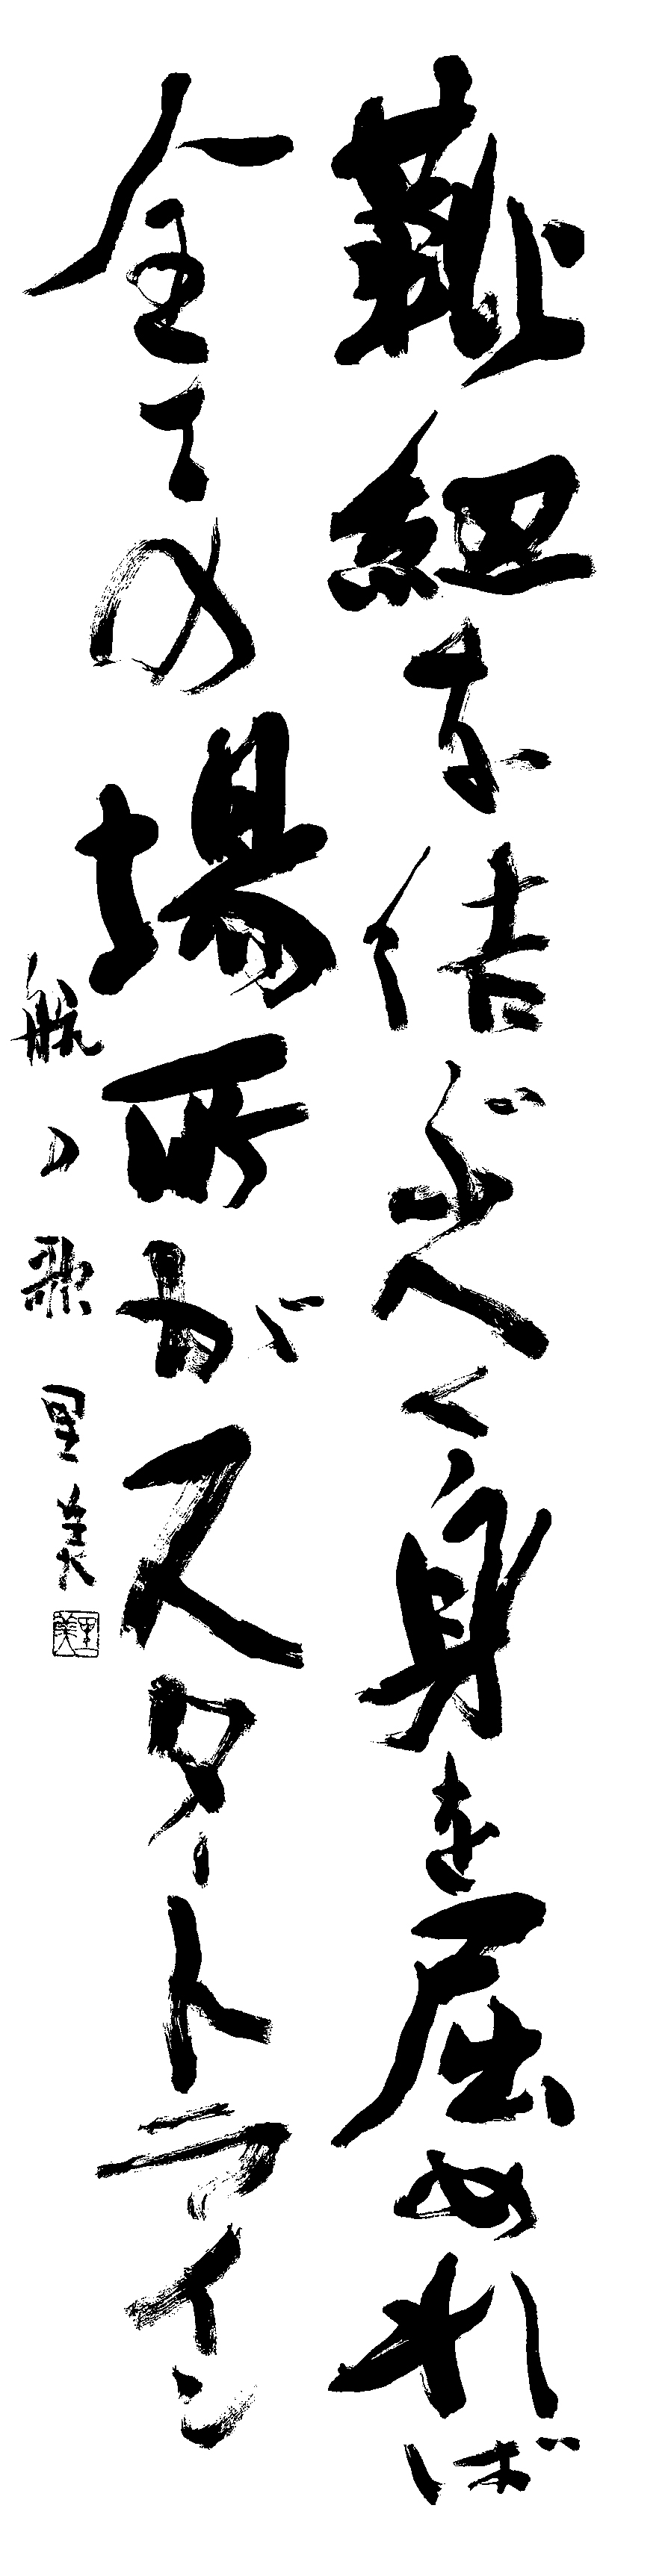 靴紐を結ぶべく身を屈めれば
全ての場所がスタートライン
航の歌 里美
里美